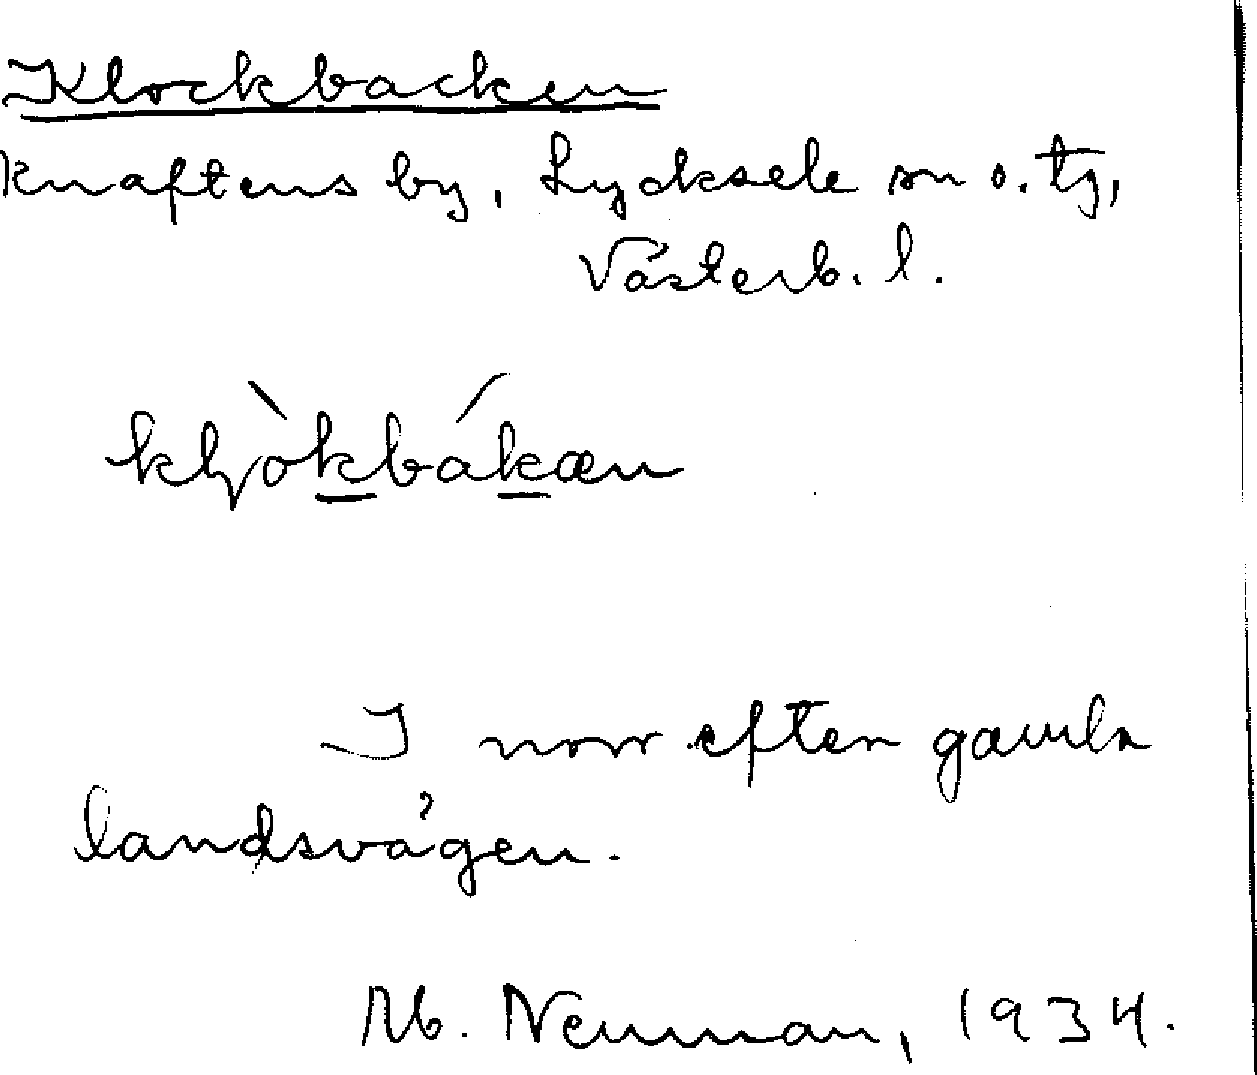 Klockbacken
Knaftens by, Lycksele sn o. tg,
Västerb. l.
kḷjòkbákæn
I norr efter gamla
landsvägen.
Ab. Neuman, 1934.